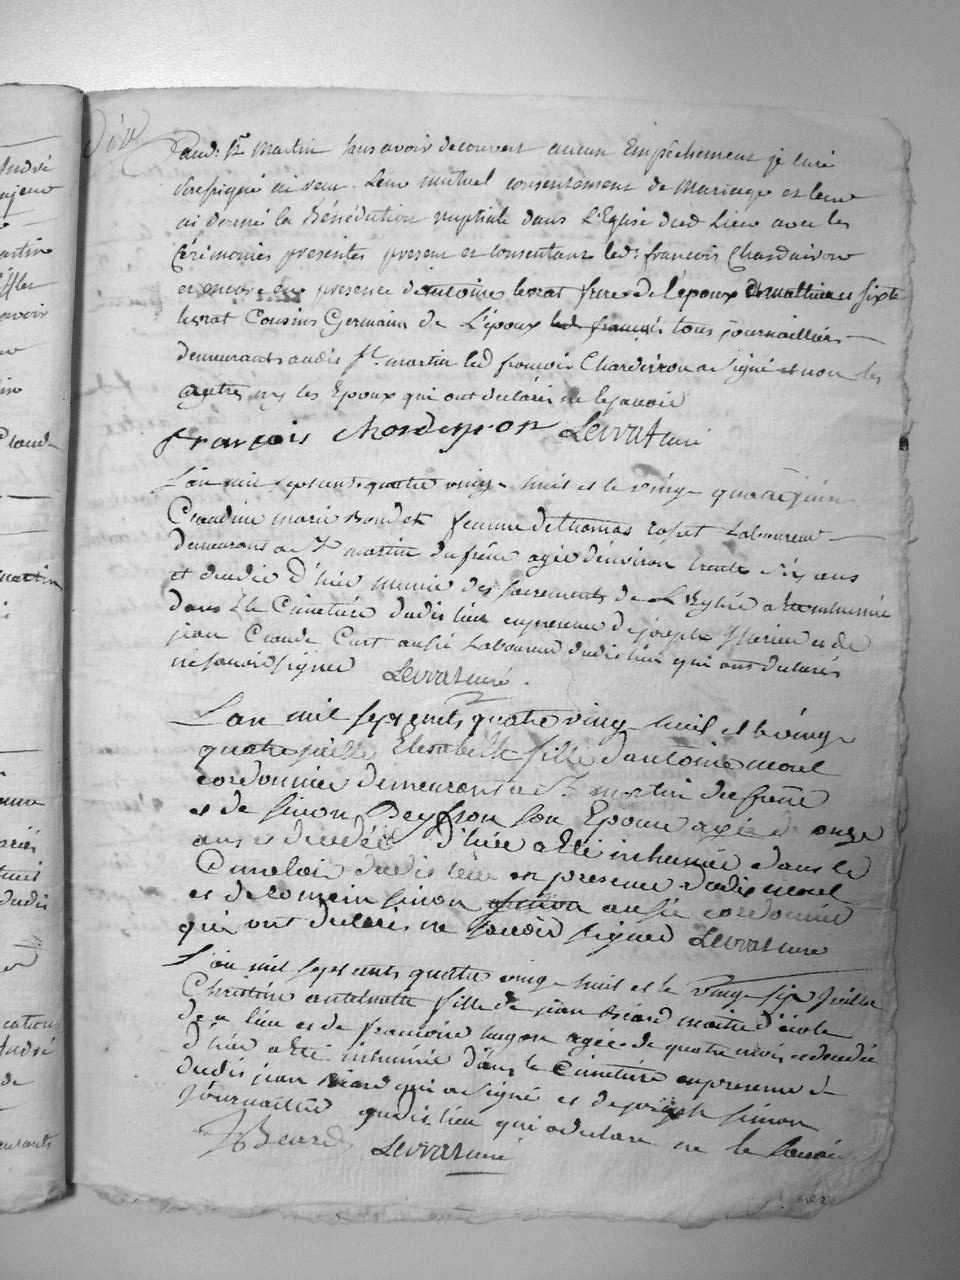 aud: St Martin sans avoir decouvert aucun Empêchement je curé
soussigné ai reçu Leur mutuel consentement de Mariage et leur
ai donné la Bénédiction nuptiale dans L'Eglise dud Lieu avec les
Cérémonies présentes present et consentant led: françois Chardeiron
et encore en presence d'antoine levrat frere de l'époux et mathieu et sixte
levrat Cousins Germains de L'époux led françois tous journailliers
demeurants audit St. martin led françois Chardeiron a signé et non les
autres ny les Epoux qui ont déclarés ne le sçavoir
françois Chardeyron Levrat curé
L'an mil sept cents quatre vingt huit et le vingt quatre juin
Claudine marie Bondet femme de thomas rosset Laboureur
demeurans a St martin du frêne agée d'environ trente six ans
et décédée d'hier munie des sacrements de L'Eglise a eté inhumée
dans le Cimetiére dudit lieu en presence de joseph et de
jean Claude Curt aussi Laboureur dudit lieu qui ont declarés
ne savoir signer Levrat curé.
L'an mil sept cents quatre vingt huit et le vingt
quatre juillet Elisabeth fille d'antoine morel
cordonnier demeurant a St martin du frêne
et de simon Beysson son Epouse agée d onze
ans et décédée d'hier a eté inhumée dans le
Cimetiere dudit lieu en presence dudit morel
et de romain simon aussi cordonnier
qui ont déclarés ne savoir signer Levrat curé
L'an mil sept cents quatre vingt huit et le vingt six juillet
Christine antelmette fille de jean Béard maitre d'école
de ce lieu et de francoise hugon agée de quatre mois et décédée
d'hier a eté inhumée dans le Cimetiére en presence d
dudit jean Béard qui a signé et de joseph simon
Journaillier dudit lieu qui a déclaré ne le savoir
JBeard Levrat curé